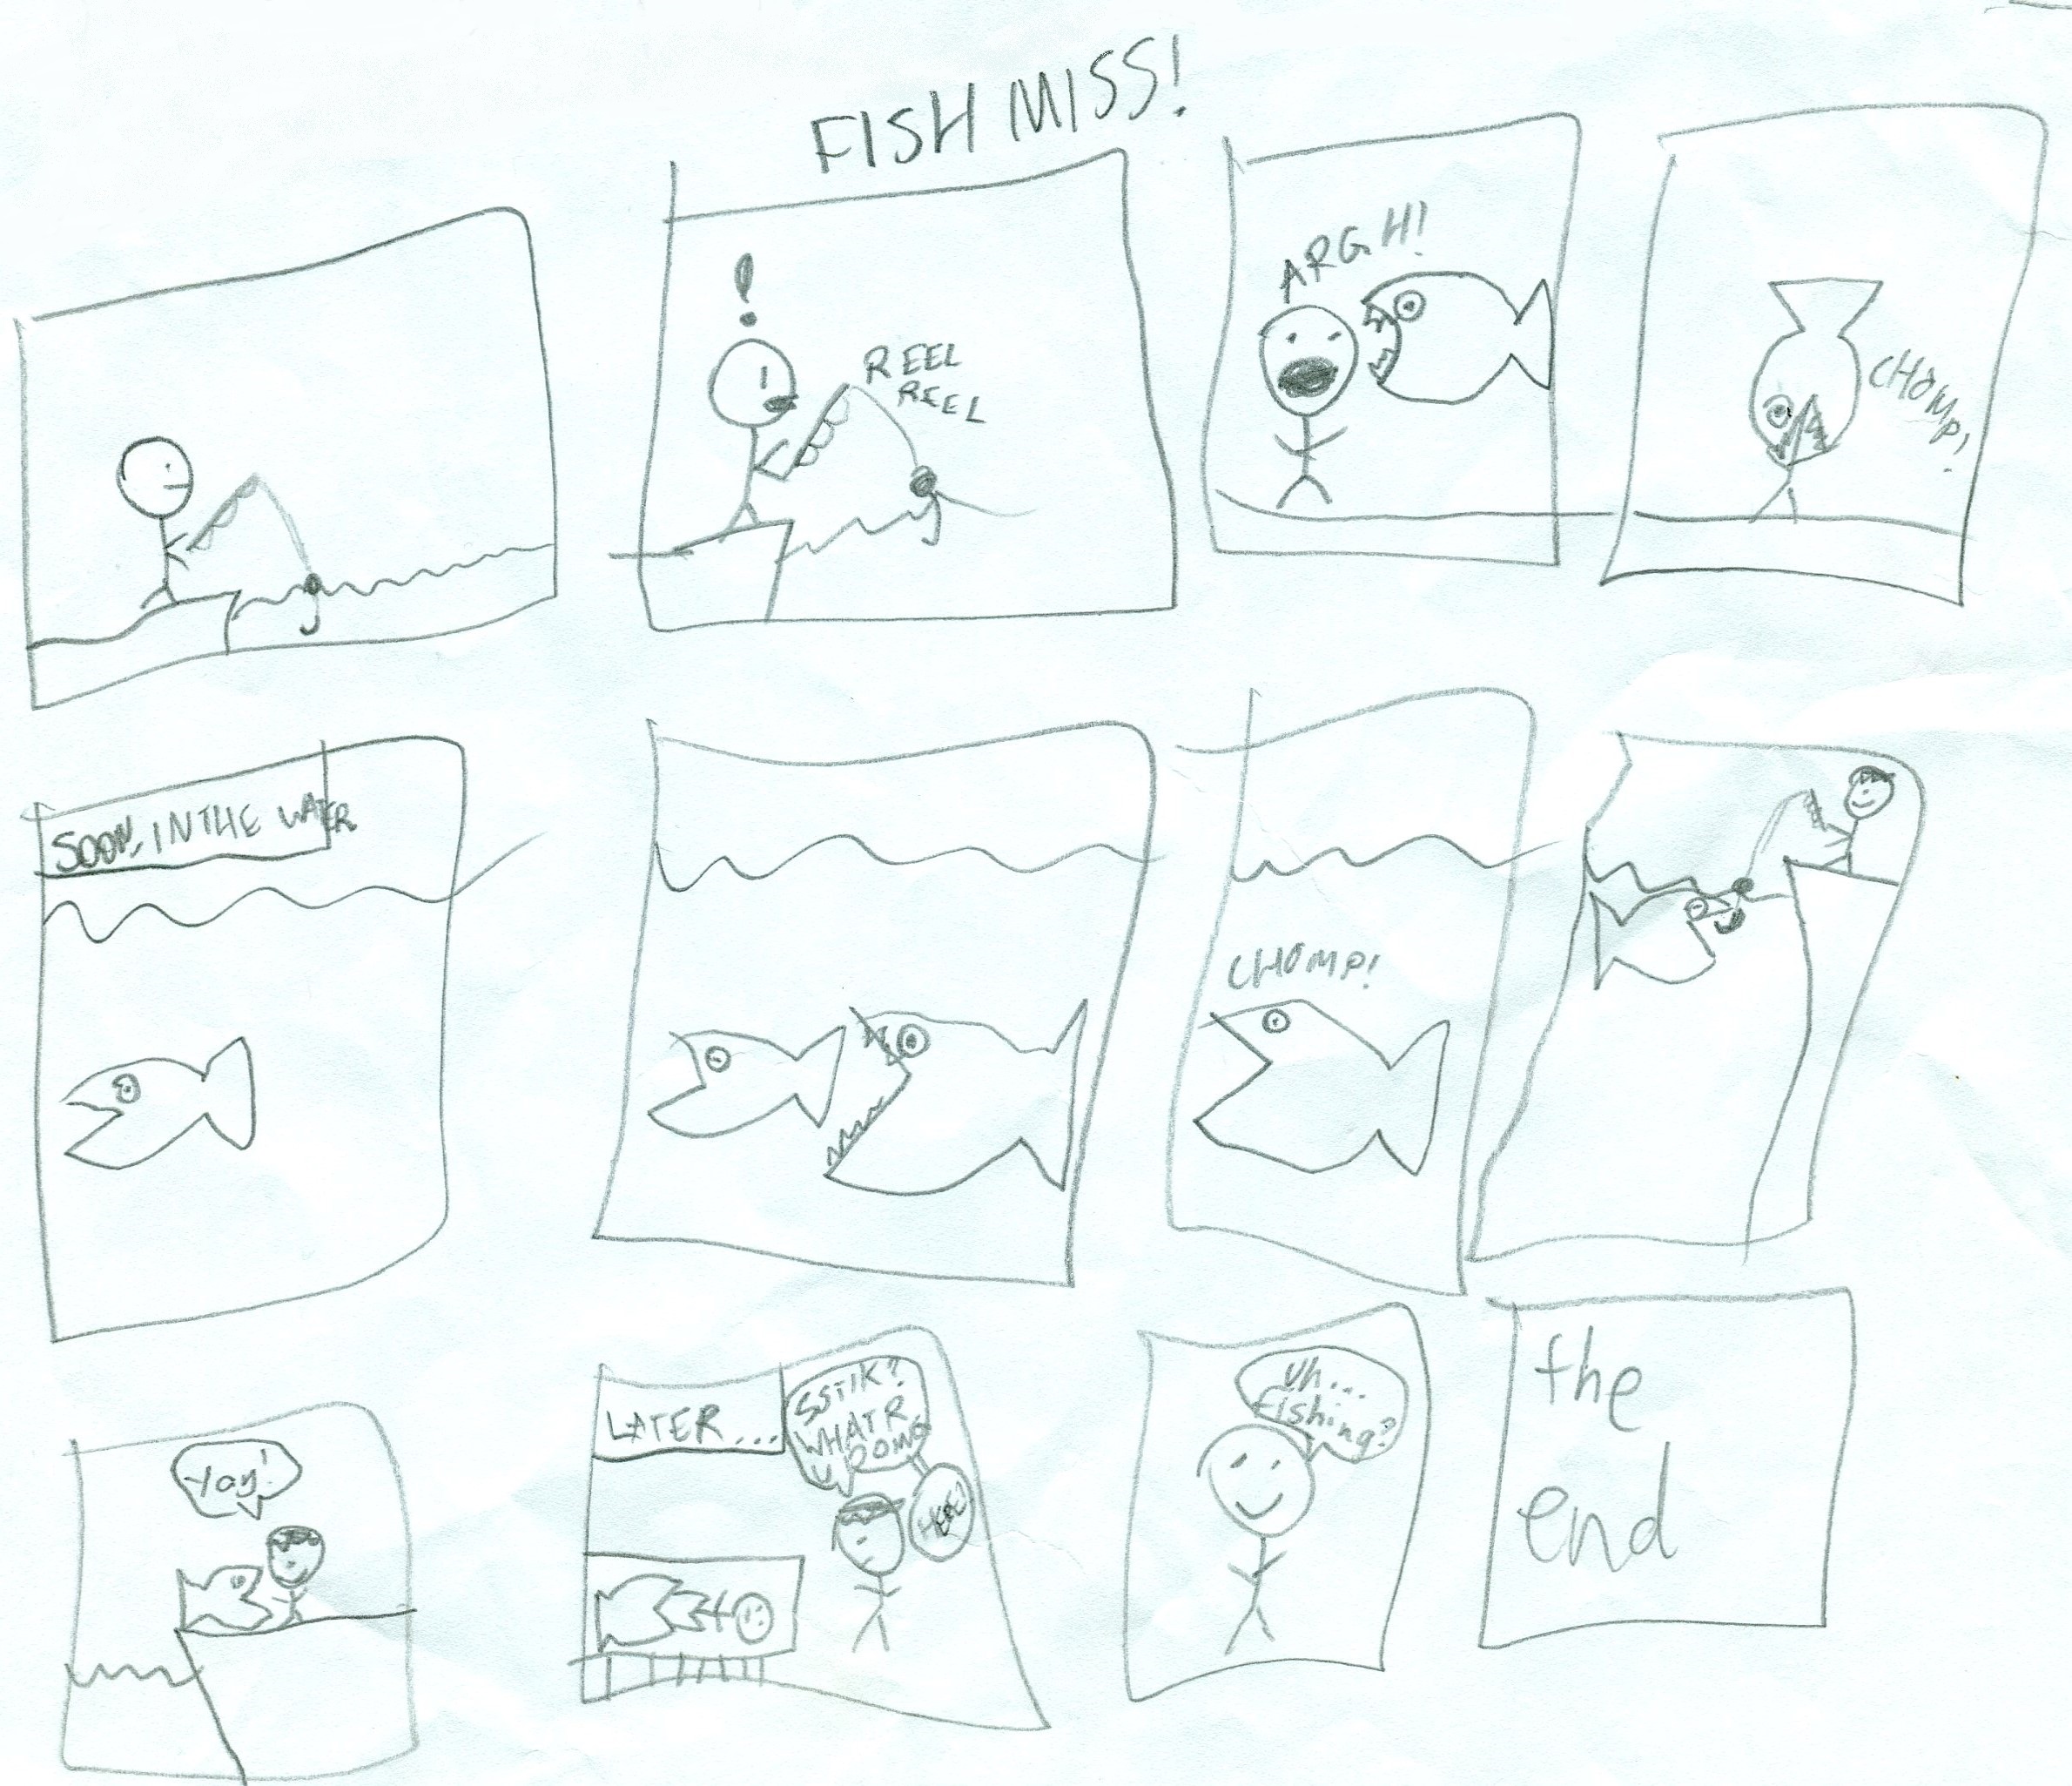 FISH MISS!
!
REEL
REEL
ARGH!
CHOMP!
SOON, IN THE WATER
CHOMP!
Yay!
LATER...
SSTIK?
WHAT R
U DOING
HERE?
Uh...
Fishing?
the
end